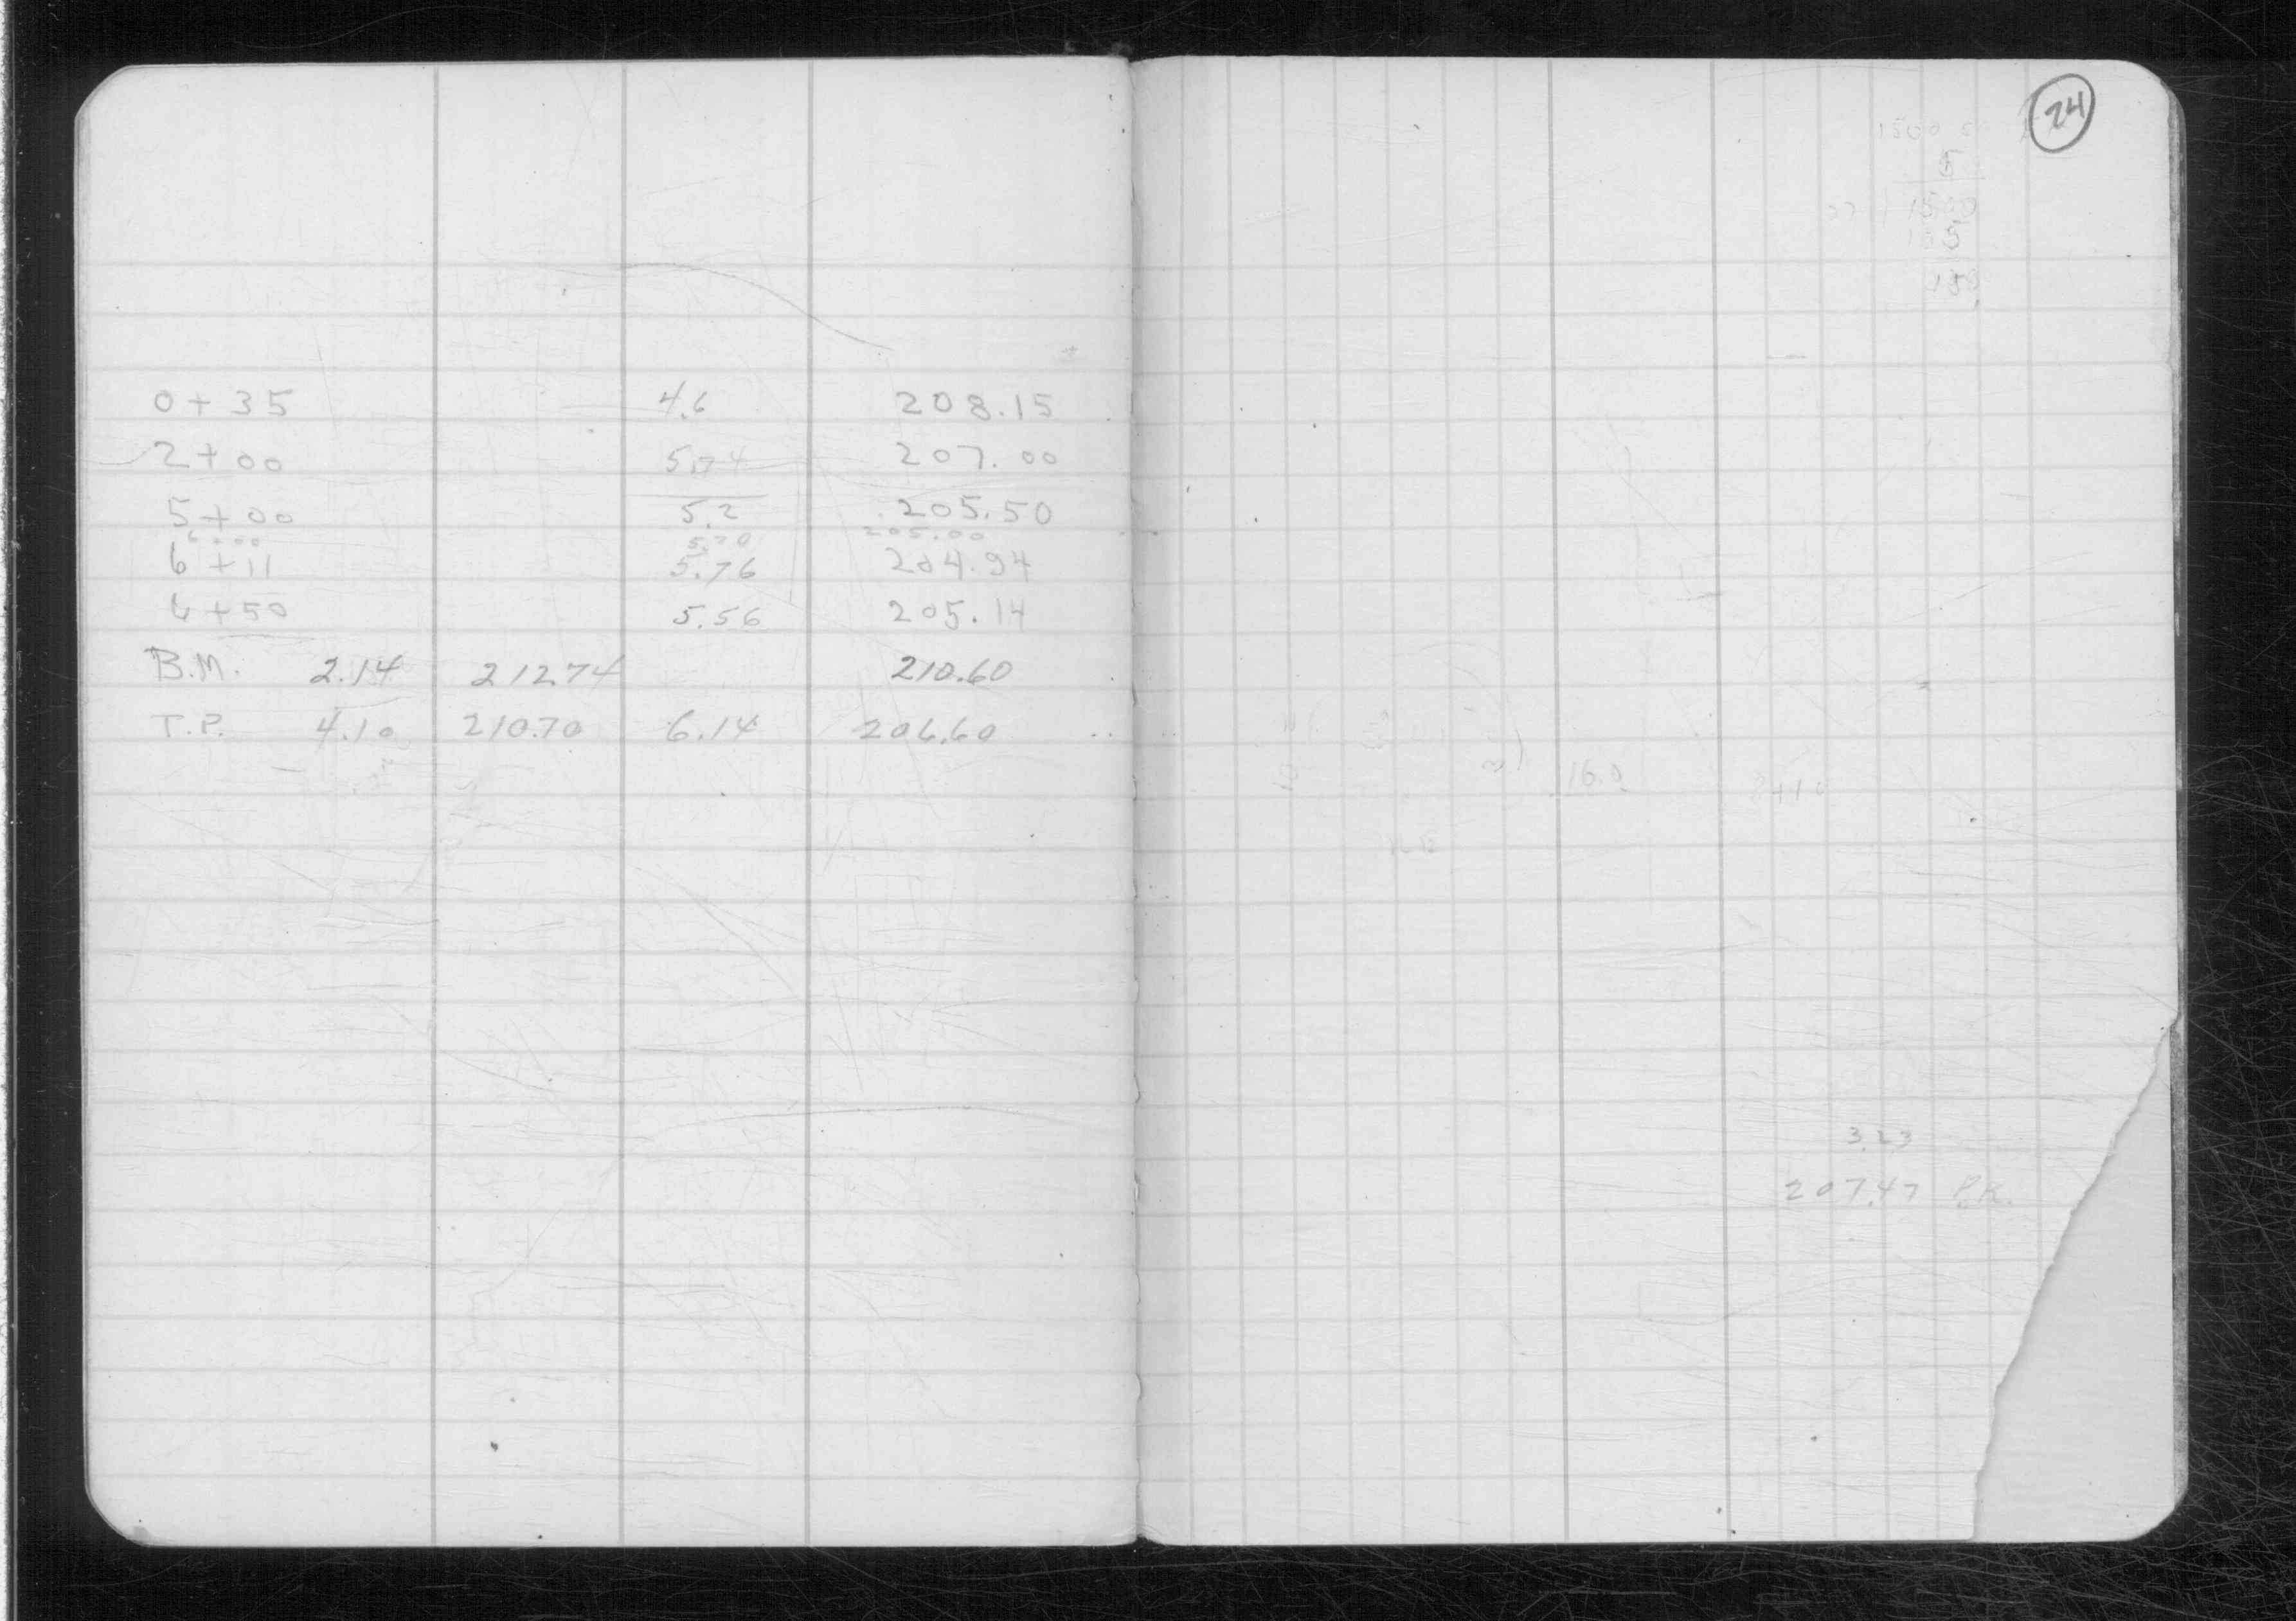 0+35 4.6 208.15
2+00 5.74 207.00
5+00 5.2 205.50
6+00 5.70 205.00
6+11 5.76 204.94
6+50 5.56 205.14
B.M. 2.14 212.74 210.60
T.P. 4.10 210.70 6.14 206.60
24
16.0
3.23
207.47 P.K.